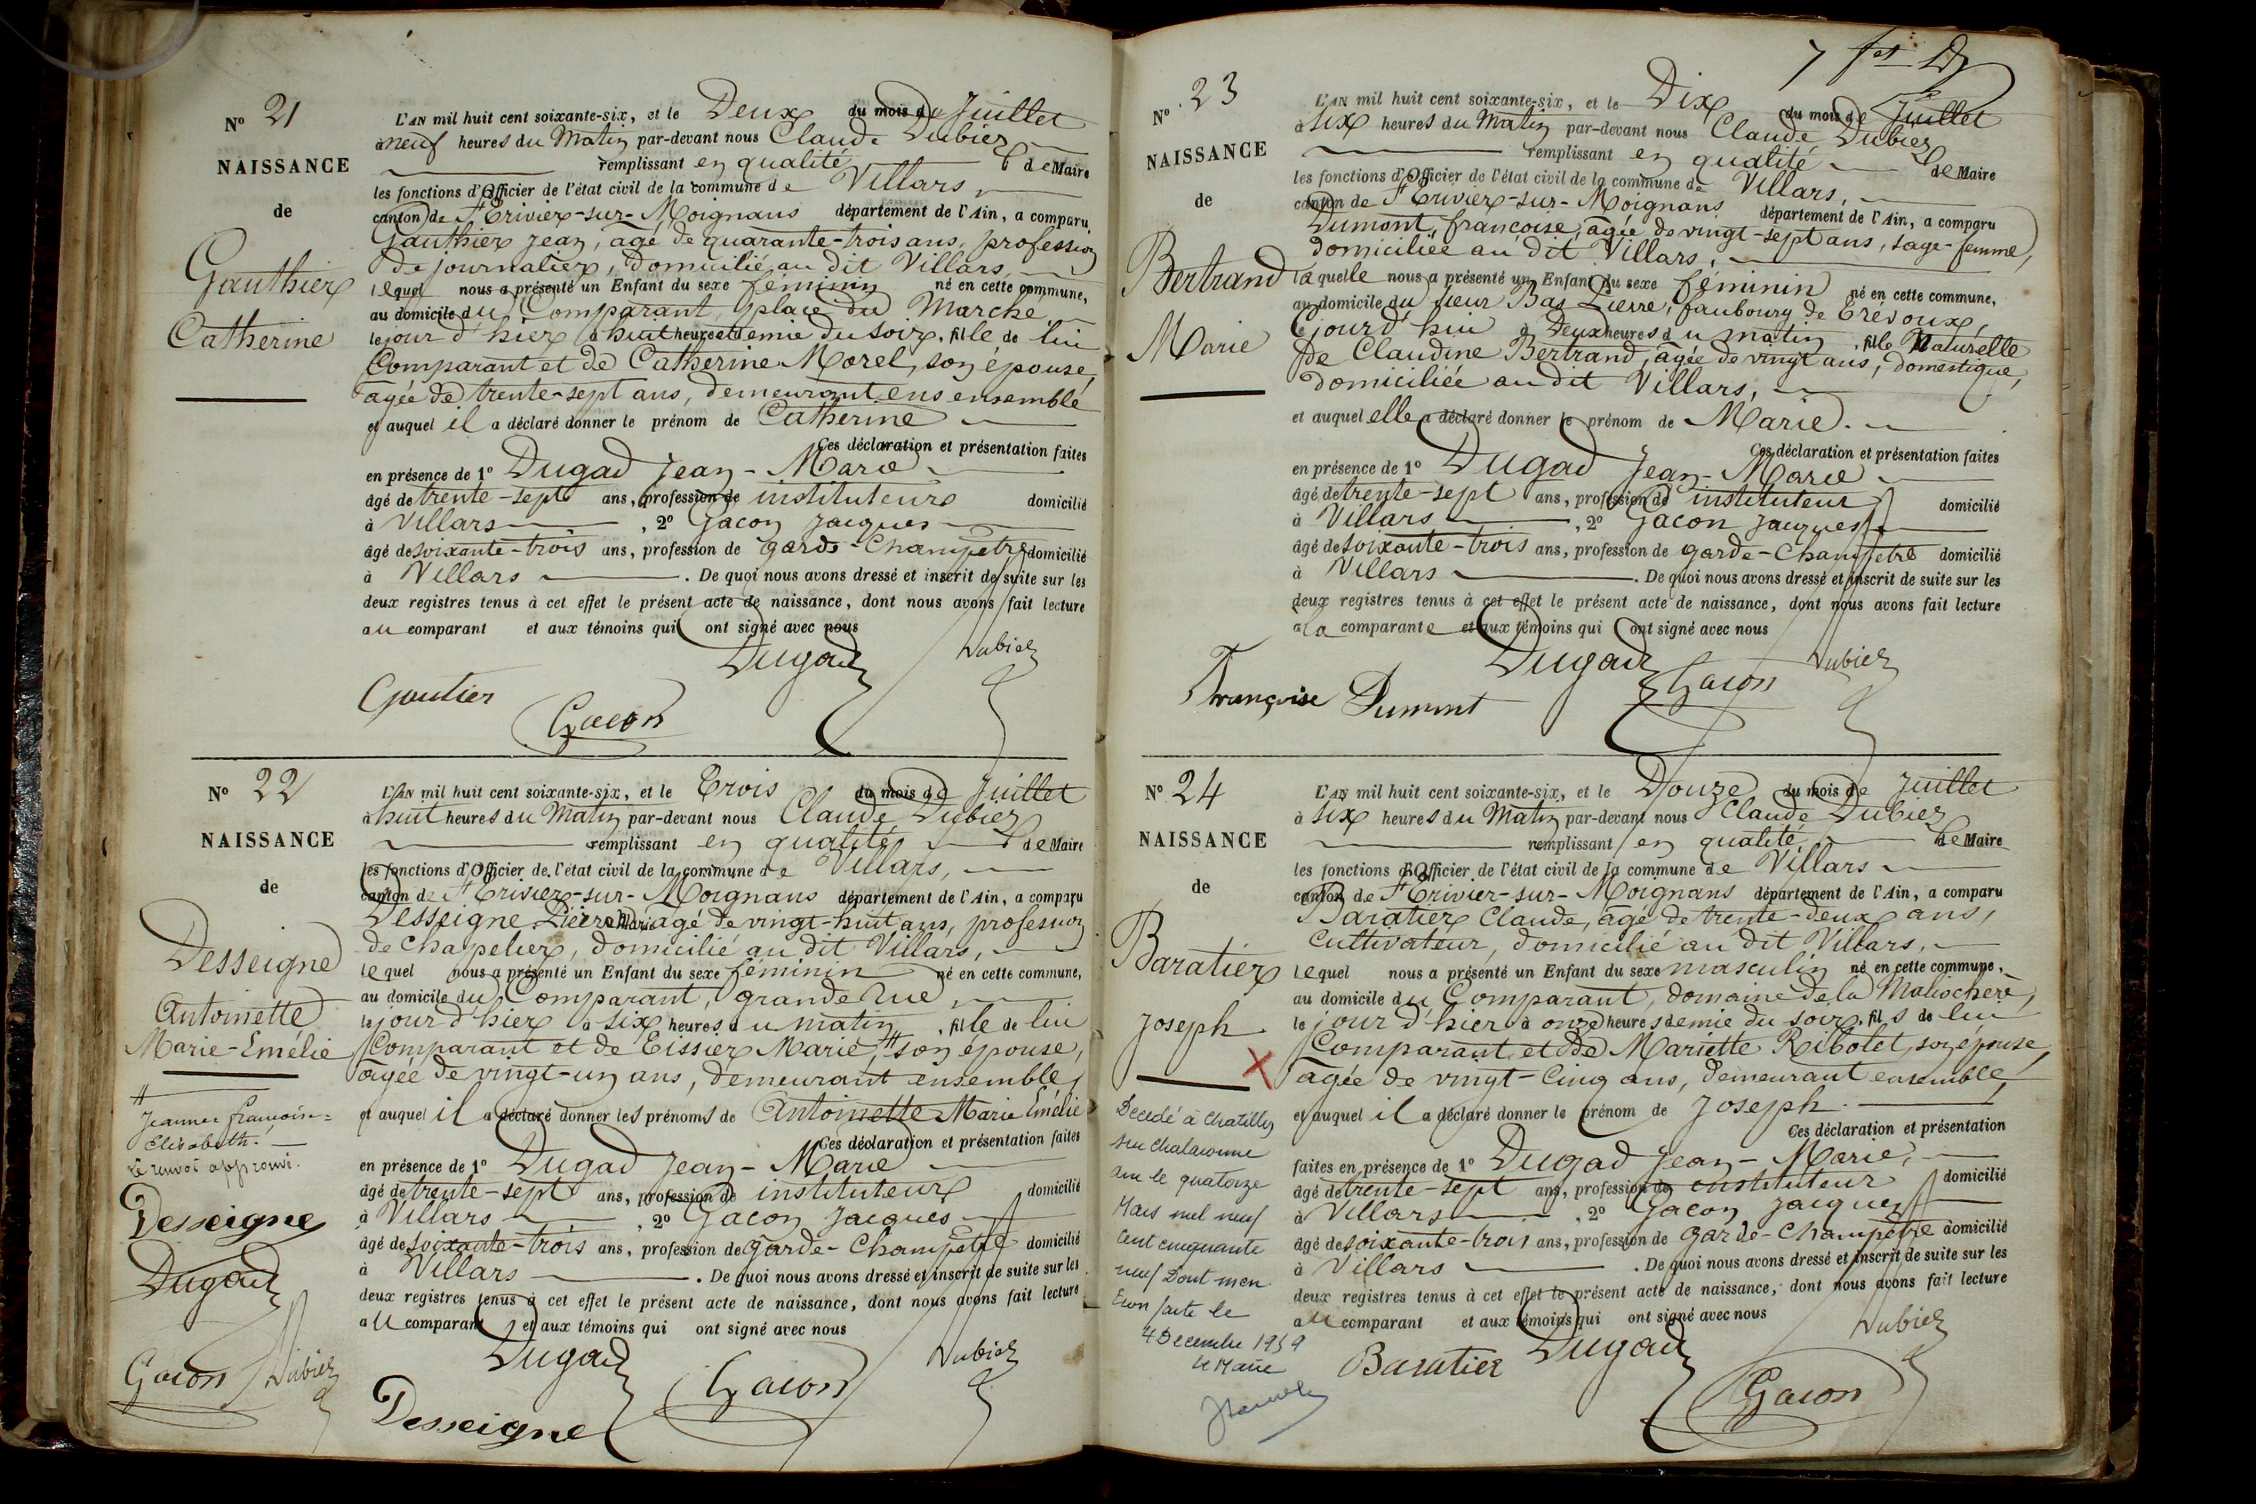 Nº 21
NAISSANCE
de
Gauthier
Catherine
L'AN mil huit cent soixante-six, et le Deux du mois de Juillet
à neuf heures du Matin par-devant nous Claude Dubiez
remplissant en qualité de Maire
les fonctions d'Officier de l'état civil de la commune de Villars,
canton de St Trivier-sur-Moignans département de l'Ain, a comparu
Gauthier Jean, agé de quarante-trois ans, profession
de journalier, domicilié au dit Villars,
lequel nous a présenté un Enfant du sexe féminin né en cette commune,
au domicile du Comparant, place du Marché
le jour d'hier à huit heures et demie du soir, fille de lui
Comparant et de Catherine Morel, son épouse,
agée de trente-sept ans, demeurant ens ensemble
et auquel il a déclaré donner le prénom de Catherine
Ces déclaration et présentation faites
en présence de 1º Dugad Jean-Marie
âgé de trente-sept ans, profession de instituteur domicilié
à Villars, 2º Gacon Jacques
âgé de soixante-trois ans, profession de garde-Champêtre domicilié
à Villars. De quoi nous avons dressé et inscrit de suite sur les
deux registres tenus à cet effet le présent acte de naissance, dont nous avons fait lecture
au comparant et aux témoins qui ont signé avec nous
Dugad Dubiez
Gautier
Gacon
Nº 22
NAISSANCE
de
Desseigne
Antoinette
Marie-Emélie
#
Jeanne françoise=
Elisabeth.
Le renvoi approuvé.
Desseigne
Dugad
Gacon Dubiez
L'AN mil huit cent soixante-six, et le Trois du mois de Juillet
à huit heures du Matin par-devant nous Claude Dubiez
remplissant en qualité de Maire
les fonctions d'Officier de l'état civil de la commune de Villars,
canton de St Trivier-sur-Moignans département de l'Ain, a comparu
Desseigne Pierre Marie agé de vingt-huit ans, profession
de chapelier, domicilié au dit Villars,
lequel nous a présenté un Enfant du sexe féminin né en cette commune,
au domicile du Comparant, grande Rue,
le jour d'hier à six heures du matin, fille de lui
Comparant et de Tissier Marie, # son épouse,
agée de vingt-un ans, demeurant ensemble,
et auquel il a déclaré donner les prénoms de Antoinette Marie Emélie
Ces déclaration et présentation faites
en présence de 1º Dugad Jean-Marie
âgé de trente-sept ans, profession de instituteur domicilié
à Villars, 2º Gacon Jacques
âgé de soixante-trois ans, profession de garde-Champêtre domicilié
à Villars. De quoi nous avons dressé et inscrit de suite sur les
deux registres tenus à cet effet le présent acte de naissance, dont nous avons fait lecture
au comparant et aux témoins qui ont signé avec nous
Dugad Dubiez
Desseigne Gacon
7
Nº 23
NAISSANCE
de
Bertrand
Marie
L'AN mil huit cent soixante-six, et le Dix du mois de Juillet
à six heures du Matin par-devant nous Claude Dubiez
remplissant en qualité de Maire
les fonctions d'Officier de l'état civil de la commune de Villars,
canton de St Trivier-sur-Moignans département de l'Ain, a comparu
Dumont françoise, agée de vingt-sept ans, sage-femme,
domiciliée au dit Villars,
laquelle nous a présenté un Enfant du sexe féminin né en cette commune,
au domicile du sieur Bas Pierre, faubourg de Trévoux,
le jour d'hui à Deux heures du matin, fille Naturelle
de Claudine Bertrand, agée de vingt ans, domestique,
domiciliée au dit Villars,
et auquel elle a déclaré donner le prénom de Marie.
Ces déclaration et présentation faites
en présence de 1º Dugad Jean-Marie
âgé de trente-sept ans, profession de instituteur domicilié
à Villars, 2º Gacon Jacques
âgé de soixante-trois ans, profession de garde-Champêtre domicilié
à Villars. De quoi nous avons dressé et inscrit de suite sur les
deux registres tenus à cet effet le présent acte de naissance, dont nous avons fait lecture
a la comparante et aux témoins qui ont signé avec nous
Dugad Dubiez
Françoise Dumont Gacon
Nº 24
NAISSANCE
de
Baratier
Joseph
X
Décédé à Chatillon
sur Chalaronne
Ain le quatorze
Mars mil neuf
cent cinquante
neuf Dont men
tion faite le
4 Décembre 1959
le Maire
L'AN mil huit cent soixante-six, et le Douze du mois de Juillet
à six heures du Matin par-devant nous Claude Dubiez
remplissant en qualité de Maire
les fonctions d'Officier de l'état civil de la commune de Villars
canton de St Trivier-sur-Moignans département de l'Ain, a comparu
Baratier Claude, agé de trente-deux ans,
Cultivateur, domicilié au dit Villars,
lequel nous a présenté un Enfant du sexe masculin né en cette commune,
au domicile du Comparant, domaine de la Maliochere,
le jour d'hier à onze heures demie du soir, fils de lui
Comparant, et de Mariette Ribolet, son épouse,
agée de vingt-Cinq ans, demeurant ensemble,
et auquel il a déclaré donner le prénom de Joseph.
Ces déclaration et présentation
faites en présence de 1º Dugad Jean-Marie,
âgé de trente-sept ans, profession de instituteur domicilié
à Villars, 2º Gacon Jacques
âgé de soixante-trois ans, profession de garde-Champêtre domicilié
à Villars. De quoi nous avons dressé et inscrit de suite sur les
deux registres tenus à cet effet le présent acte de naissance, dont nous avons fait lecture
au comparant et aux témoins qui ont signé avec nous
Baratier Dugad Dubiez
Gacon